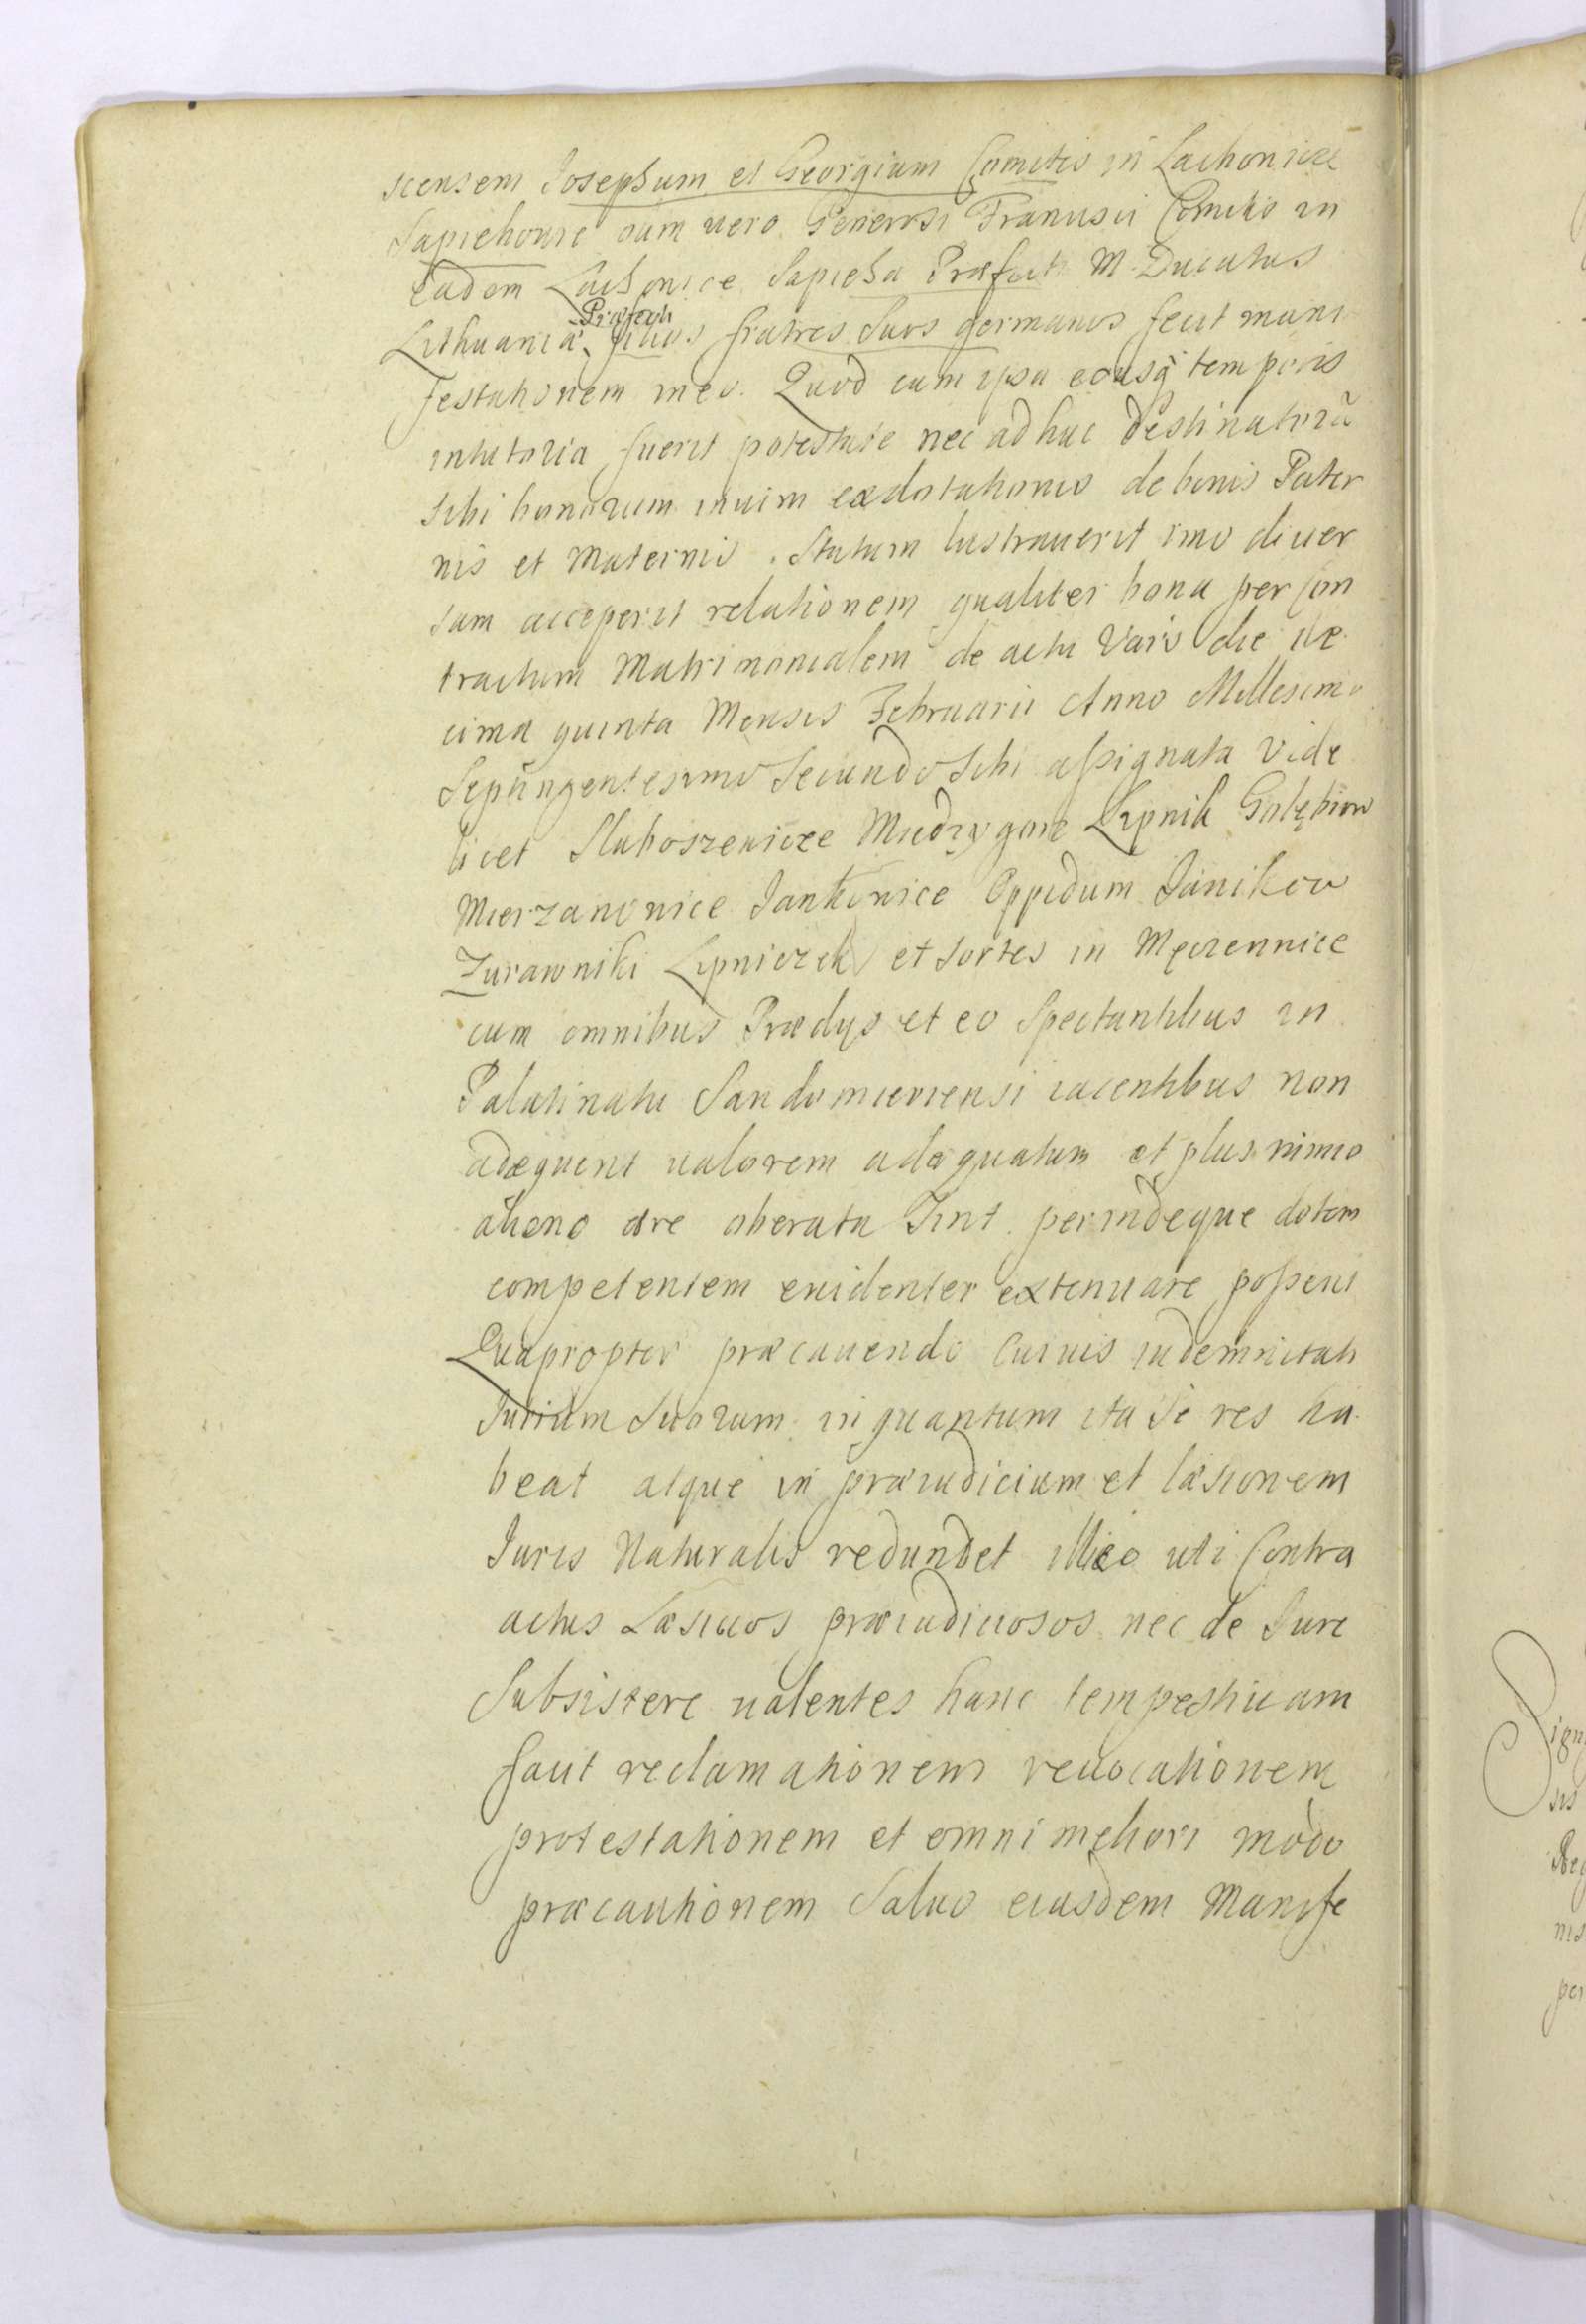 scensem Josephum et Georgium Comites in Lachonicze
Sapiehowie oum uero Generosi Francisci Comitis in
eadem Lachonice Sapieha Præfecti M. Ducatus
Lithuaniæ Præfecti filios fratres Suos germanos fecit mani
festationem in eo. Quod cum ipsa eousq temporis
in tutoria fuerit potestate nec ad huc destinatorũ
Sibi bonorum in uim exdotationis de bonis Pater
nis et Maternis. Statum lustrauerit imo diuer
sam acceperit relationem qualiter bona per Con
tractum Matrimonialem de actu Vars die de
cima quinta Mensis Februarii Anno Millesimo
Septingentesimo Secundo Sibi assignata Vide
licet Słaboszewicze Międzygorz Lipnik Gołębiow
Mierzanowice Jankowice Oppidum Janikow
Zurawniki Lipniczek et Sortes in Męczennice
cum omnibus Prædys et eo Spectantibus in
Palatinatu Sandomiriensi iacentibus non
adæquent ualorem adæquatum et plus nimio
alieno ære oberata Sint perindeque dotem
competentem euidenter extenuare possent
Quapropter præcauendo Cuiuis indemnitati
Jurium Suorum in quantum ita Se res ha
beat atque in præiudicium et læsionem
Juris Naturalis redundet illico uti Contra
actus Læsiuos præiudiciosos nec de Jure
Subsistere ualentes hanc tempestiuam
facit reclamationem reuocationem
protestationem et omni meliori modo
præcautionem Saluo eiusdem Manife